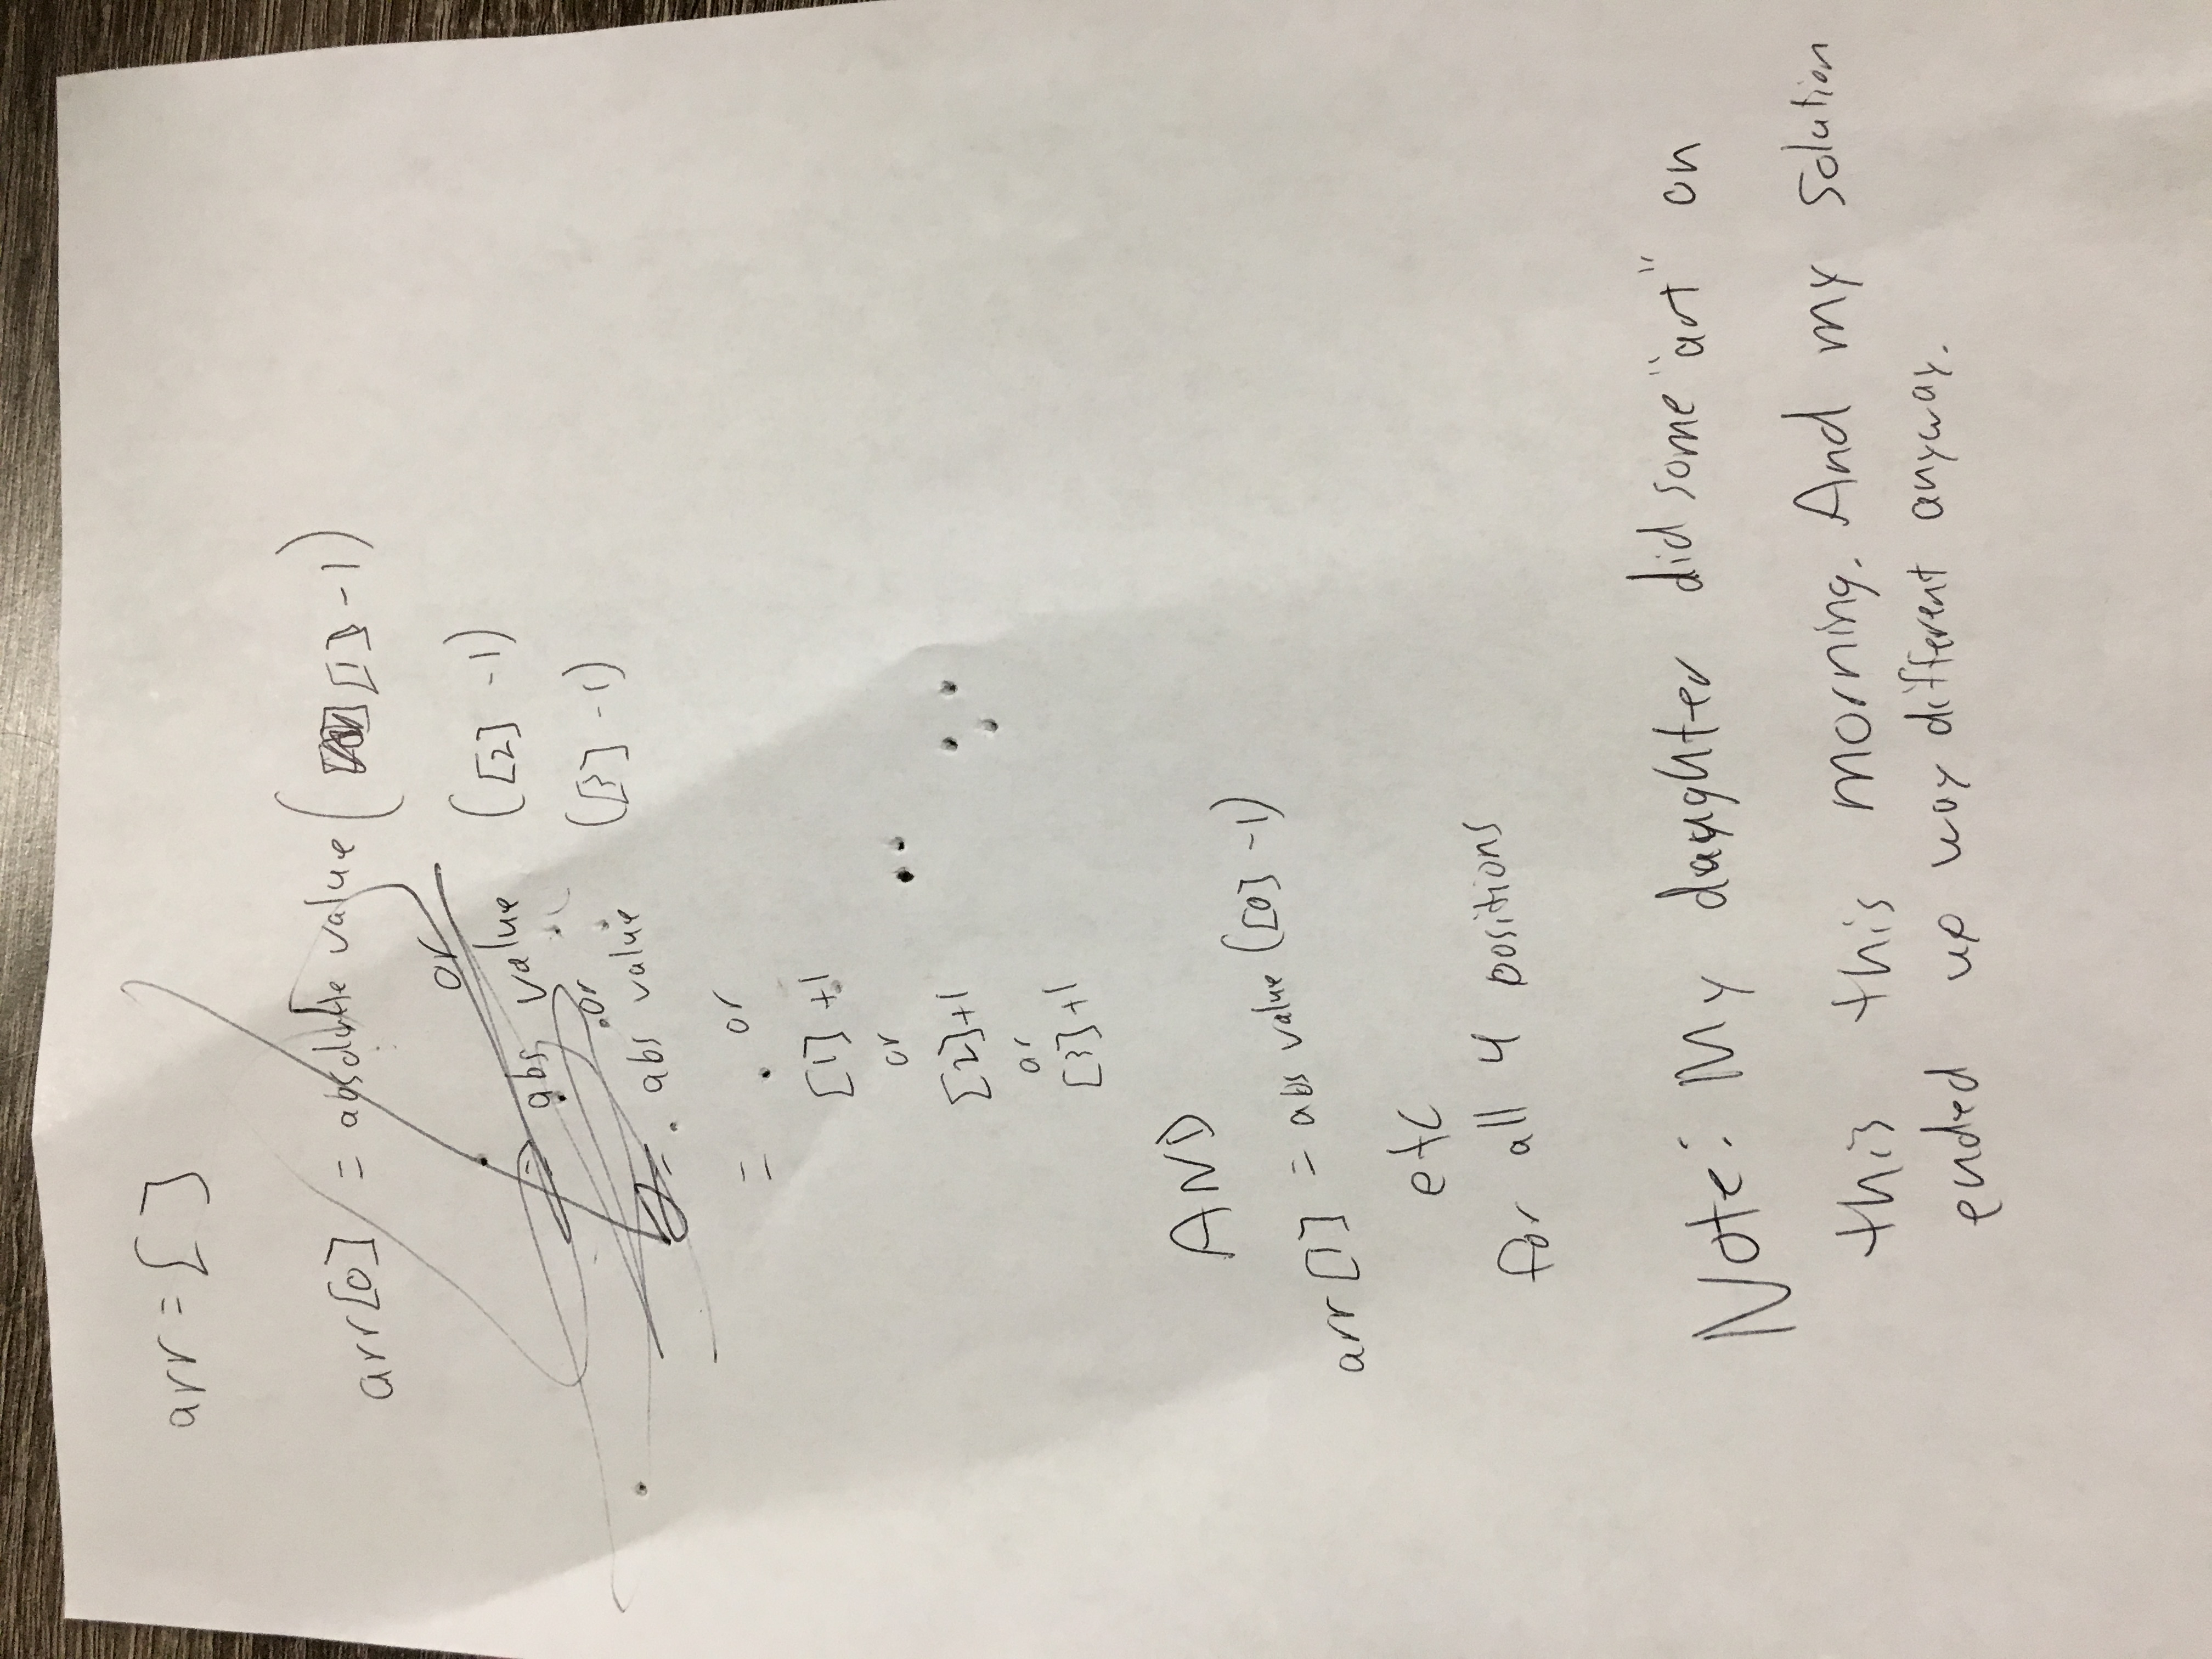 arr = [ ]
arr[0] = absolute value ( [1] -1)
or
= abs value ([2] -1)
or
= abs value ([3] -1)
= or
[1] +1
or
[2]+1
or
[3]+1
AND
arr[1] = abs value ([0] -1)
etc
for all 4 positions
Note: My daughter did some "art" on
this this morning. And my solution
ended up way different anyway.